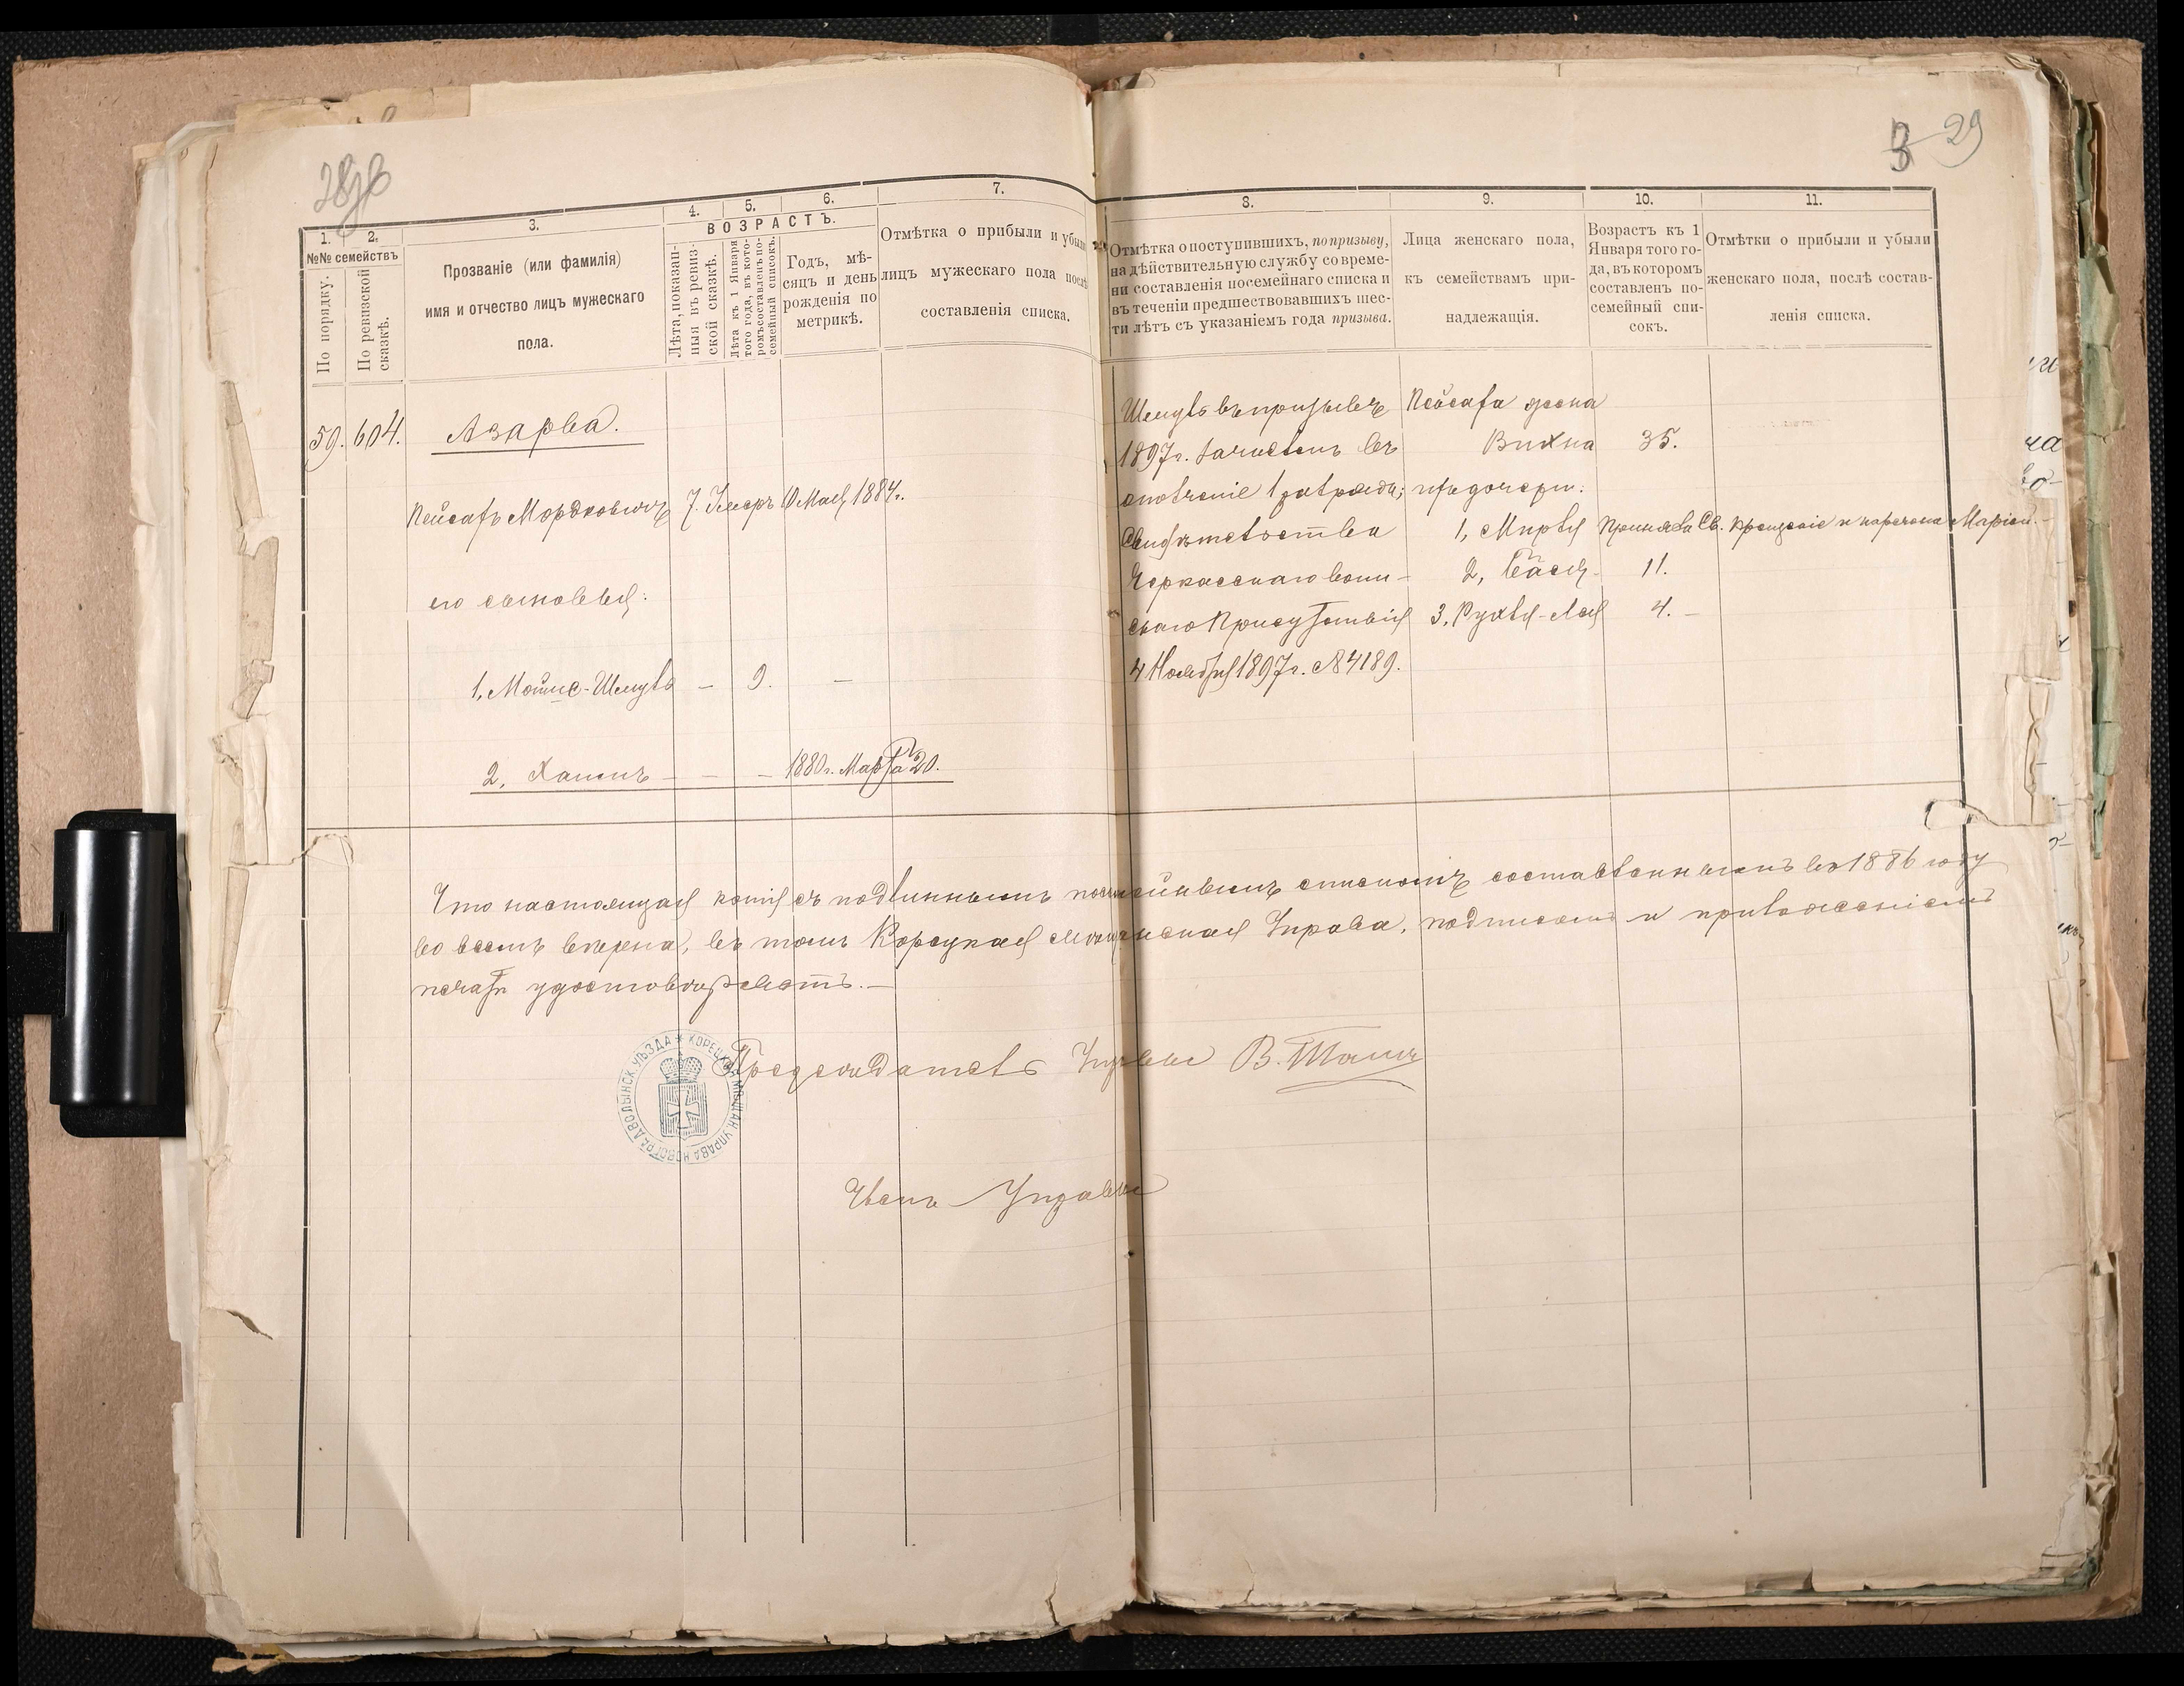 28об
3 29
1.
2.
3.
4.
5.
6.
7.
8.
9.
10.
11.
№№ семействъ
По порядку.
По ревизской сказкѣ.
Прозваніе (или фамилія)
имя и отчество лицъ мужескаго
пола.
ВОЗРАСТЪ.
Лѣта, показан-
ныя въ ревиз-
ской сказкѣ.
Лѣта къ 1 Января
того года, въ кото-
ромъ составленъ по-
семейный списокъ.
Годъ, мѣ-
сяцъ и день
рожденія по
метрикѣ.
Отмѣтка о прибыли и убыли
лицъ мужескаго пола послѣ
составленія списка.
Отмѣтка о поступившихъ, по призыву,
на дѣйствительную службу со време-
ни составленія посемейнаго списка и
въ теченіи предшествовавшихъ шес-
ти лѣтъ съ указаніемъ года призыва.
Лица женскаго пола,
къ семействамъ при-
надлежащія.
Возрастъ къ 1
Января того го-
да, въ которомъ
составленъ по-
семейный спи-
сокъ.
Отмѣтки о прибыли и убыли
женскаго пола, послѣ состав-
ленія списка.
59. 604. Азарва.
Пейсахъ Мордковичъ 7. Умеръ 10 Мая 1884 г.
его сыновья:
1, Мойше-Шмуль – 9. –
2, Хаимъ – – – 1880 г. Марта 20.
Шмуль въ призывѣ
1897 г. зачисленъ въ
ополченіе 1 разряда;
Свидѣтельства
Черкасскаго воин-
скаго Присутствія
4 Ноября 1897 г. № 4189.
Пейсаха жена
Вихна 35.
ихъ дочери:
1, Мирля Приняла Св. Крещеніе и наречена Маріей.–
2, Бася 11.
3, Рухля-Лея 4. –
Что настоящая копія съ подлиннымъ посемейнымъ спискомъ составленнымъ въ 1886 году
во всемъ вѣрна, въ томъ Корецкая мѣщанская Управа, подписомъ и приложеніемъ
печати удостовѣряетъ.–
Предсѣдатель Управы В.
Членъ Управы
КОРЕЦКАЯ МѢЩАН. УПРАВА НОВОГРАДВОЛЫНСК. УѢЗДА